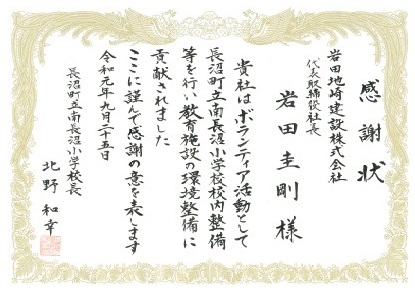 感謝状
岩田地崎建設株式会社
代表取締役社長
岩田圭剛様
貴社はボランティア活動として
長沼町立南長沼小学校校内整備
等を行い教育施設の環境整備に
貢献されました
ここに謹んで感謝の意を表します
令和元年九月二十五日
長沼町立南長沼小学校長
北野和幸